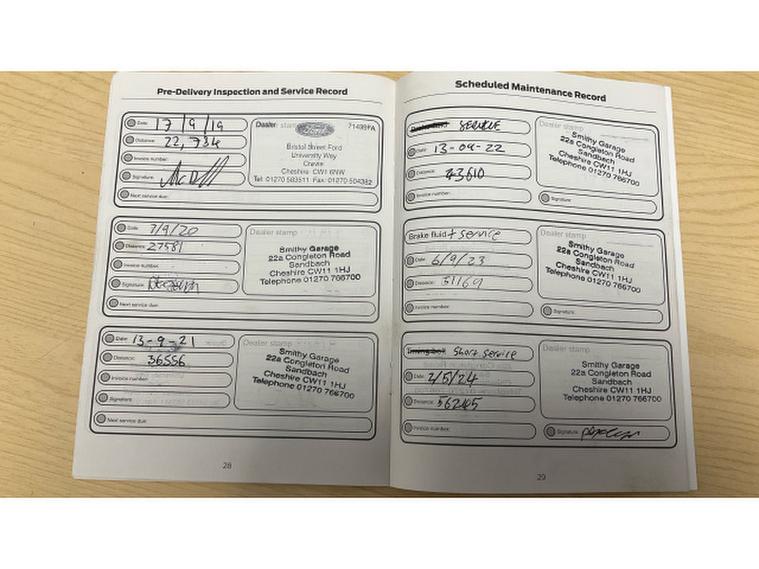 Pre-Delivery Inspection and Service Record
Date: 17/9/19
Distance: 22,734
Invoice number:
Signature:
Next service due:
Dealer stamp
Ford
71439FA
Bristol Street Ford
University Way
Crewe
Cheshire CW1 6NW
Tel: 01270 583511 Fax: 01270 504382
Date: 7/9/20
Distance: 27581
Invoice number:
Signature:
Next service due:
Dealer stamp
Smithy Garage
22a Congleton Road
Sandbach
Cheshire CW11 1HJ
Telephone 01270 766700
Date: 13-9-21
Distance: 36556
Invoice number:
Signature:
Next service due:
Dealer stamp
Smithy Garage
22a Congleton Road
Sandbach
Cheshire CW11 1HJ
Telephone 01270 766700
28
Scheduled Maintenance Record
SERVICE
Date: 13-09-22
Distance: 43610
Invoice number:
Dealer stamp
Smithy Garage
22a Congleton Road
Sandbach
Cheshire CW11 1HJ
Telephone 01270 766700
Signature:
Brake fluid + service
Date: 6/9/23
Distance: 51169
Invoice number:
Dealer stamp
Smithy Garage
22a Congleton Road
Sandbach
Cheshire CW11 1HJ
Telephone 01270 766700
Signature:
Timing belt Short Service
Date: 2/5/24
Distance:
Invoice number:
Dealer stamp
Smithy Garage
22a Congleton Road
Sandbach
Cheshire CW11 1HJ
Telephone 01270 766700
Signature:
29